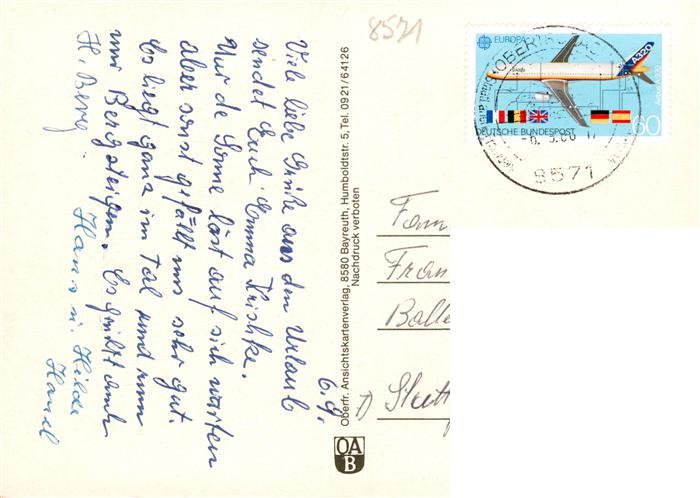 6.9.
Viele liebe Grüße aus dem Urlaub
sendet Euch Emma Krishke.
Nur die Sonne läst auf sich warten
aber sonst gefällt uns sehr gut.
Es liegt ganz im Tal rund rum
nur Bergsteigen. Es grüßt auch
H. Berg.
Hans u. Hilde
Hanel
Oberfr. Ansichtskartenverlag, 8580 Bayreuth, Humboldtstr. 5, Tel. 0921/64126
Nachdruck verboten
OA
B
8571
EUROPA
A320
DEUTSCHE BUNDESPOST
60
8571
Fam
Fran
Balle
Stutt